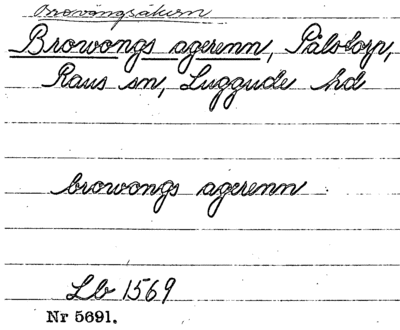 Browångsåkern
Browongs agerenn, Pålstorp,
Raus sn, Luggude hd
browongs agerenn
Lb 1569
Nr 5691.